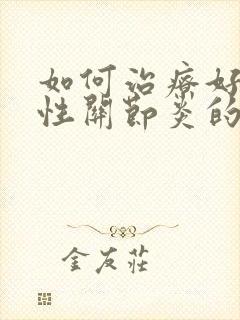 如何治療好
性關節炎的
金友莊